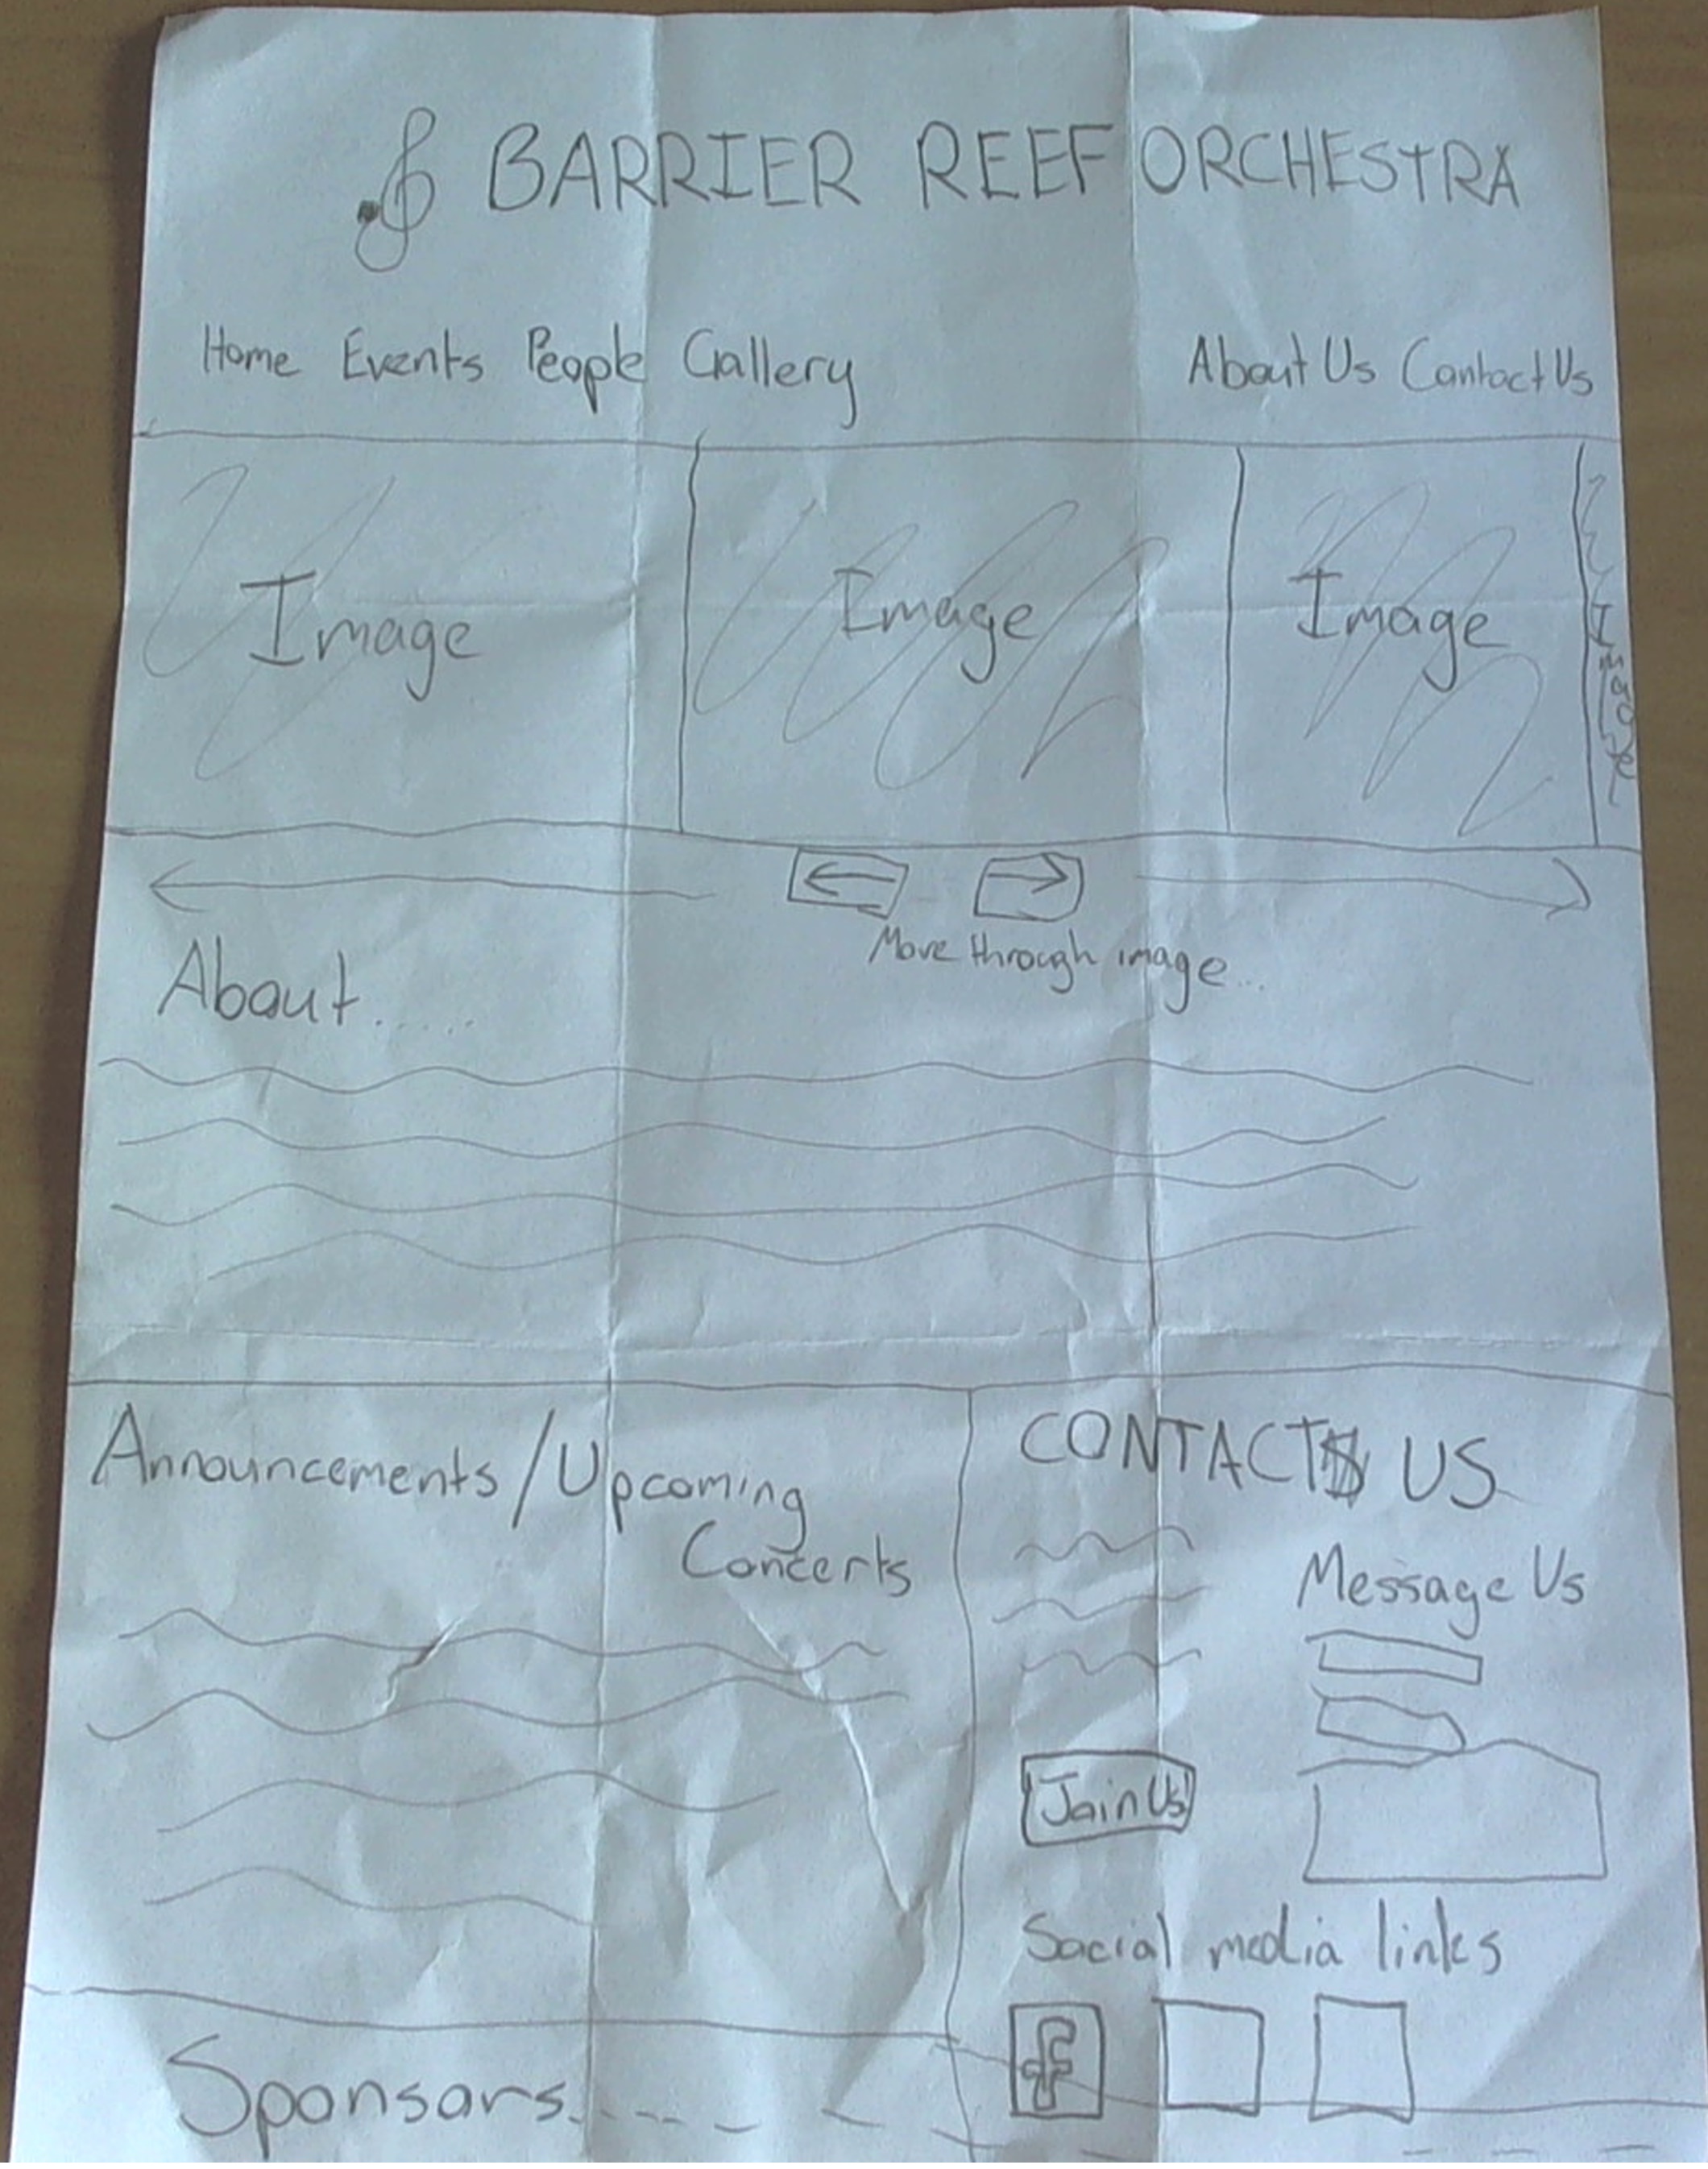 BARRIER REEF ORCHESTRA
Home Events People Gallery About Us Contact Us
Image Image Image Image
Move through image...
About......
Announcements/Upcoming
Concerts
CONTACT US
Message Us
Join Us
Social media links
f
Sponsors